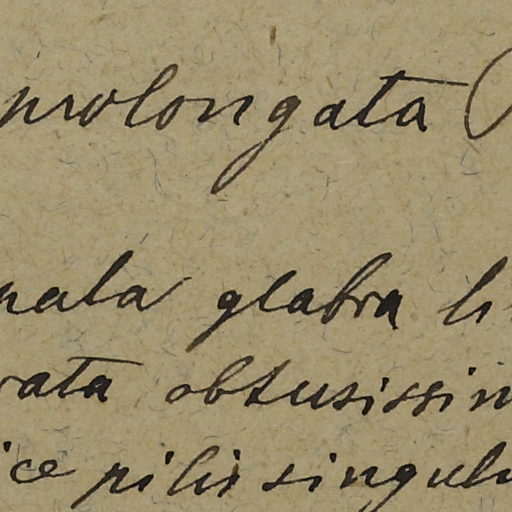 prolongata (
nala glabra li
rata obtusissim
ice pilis singulu